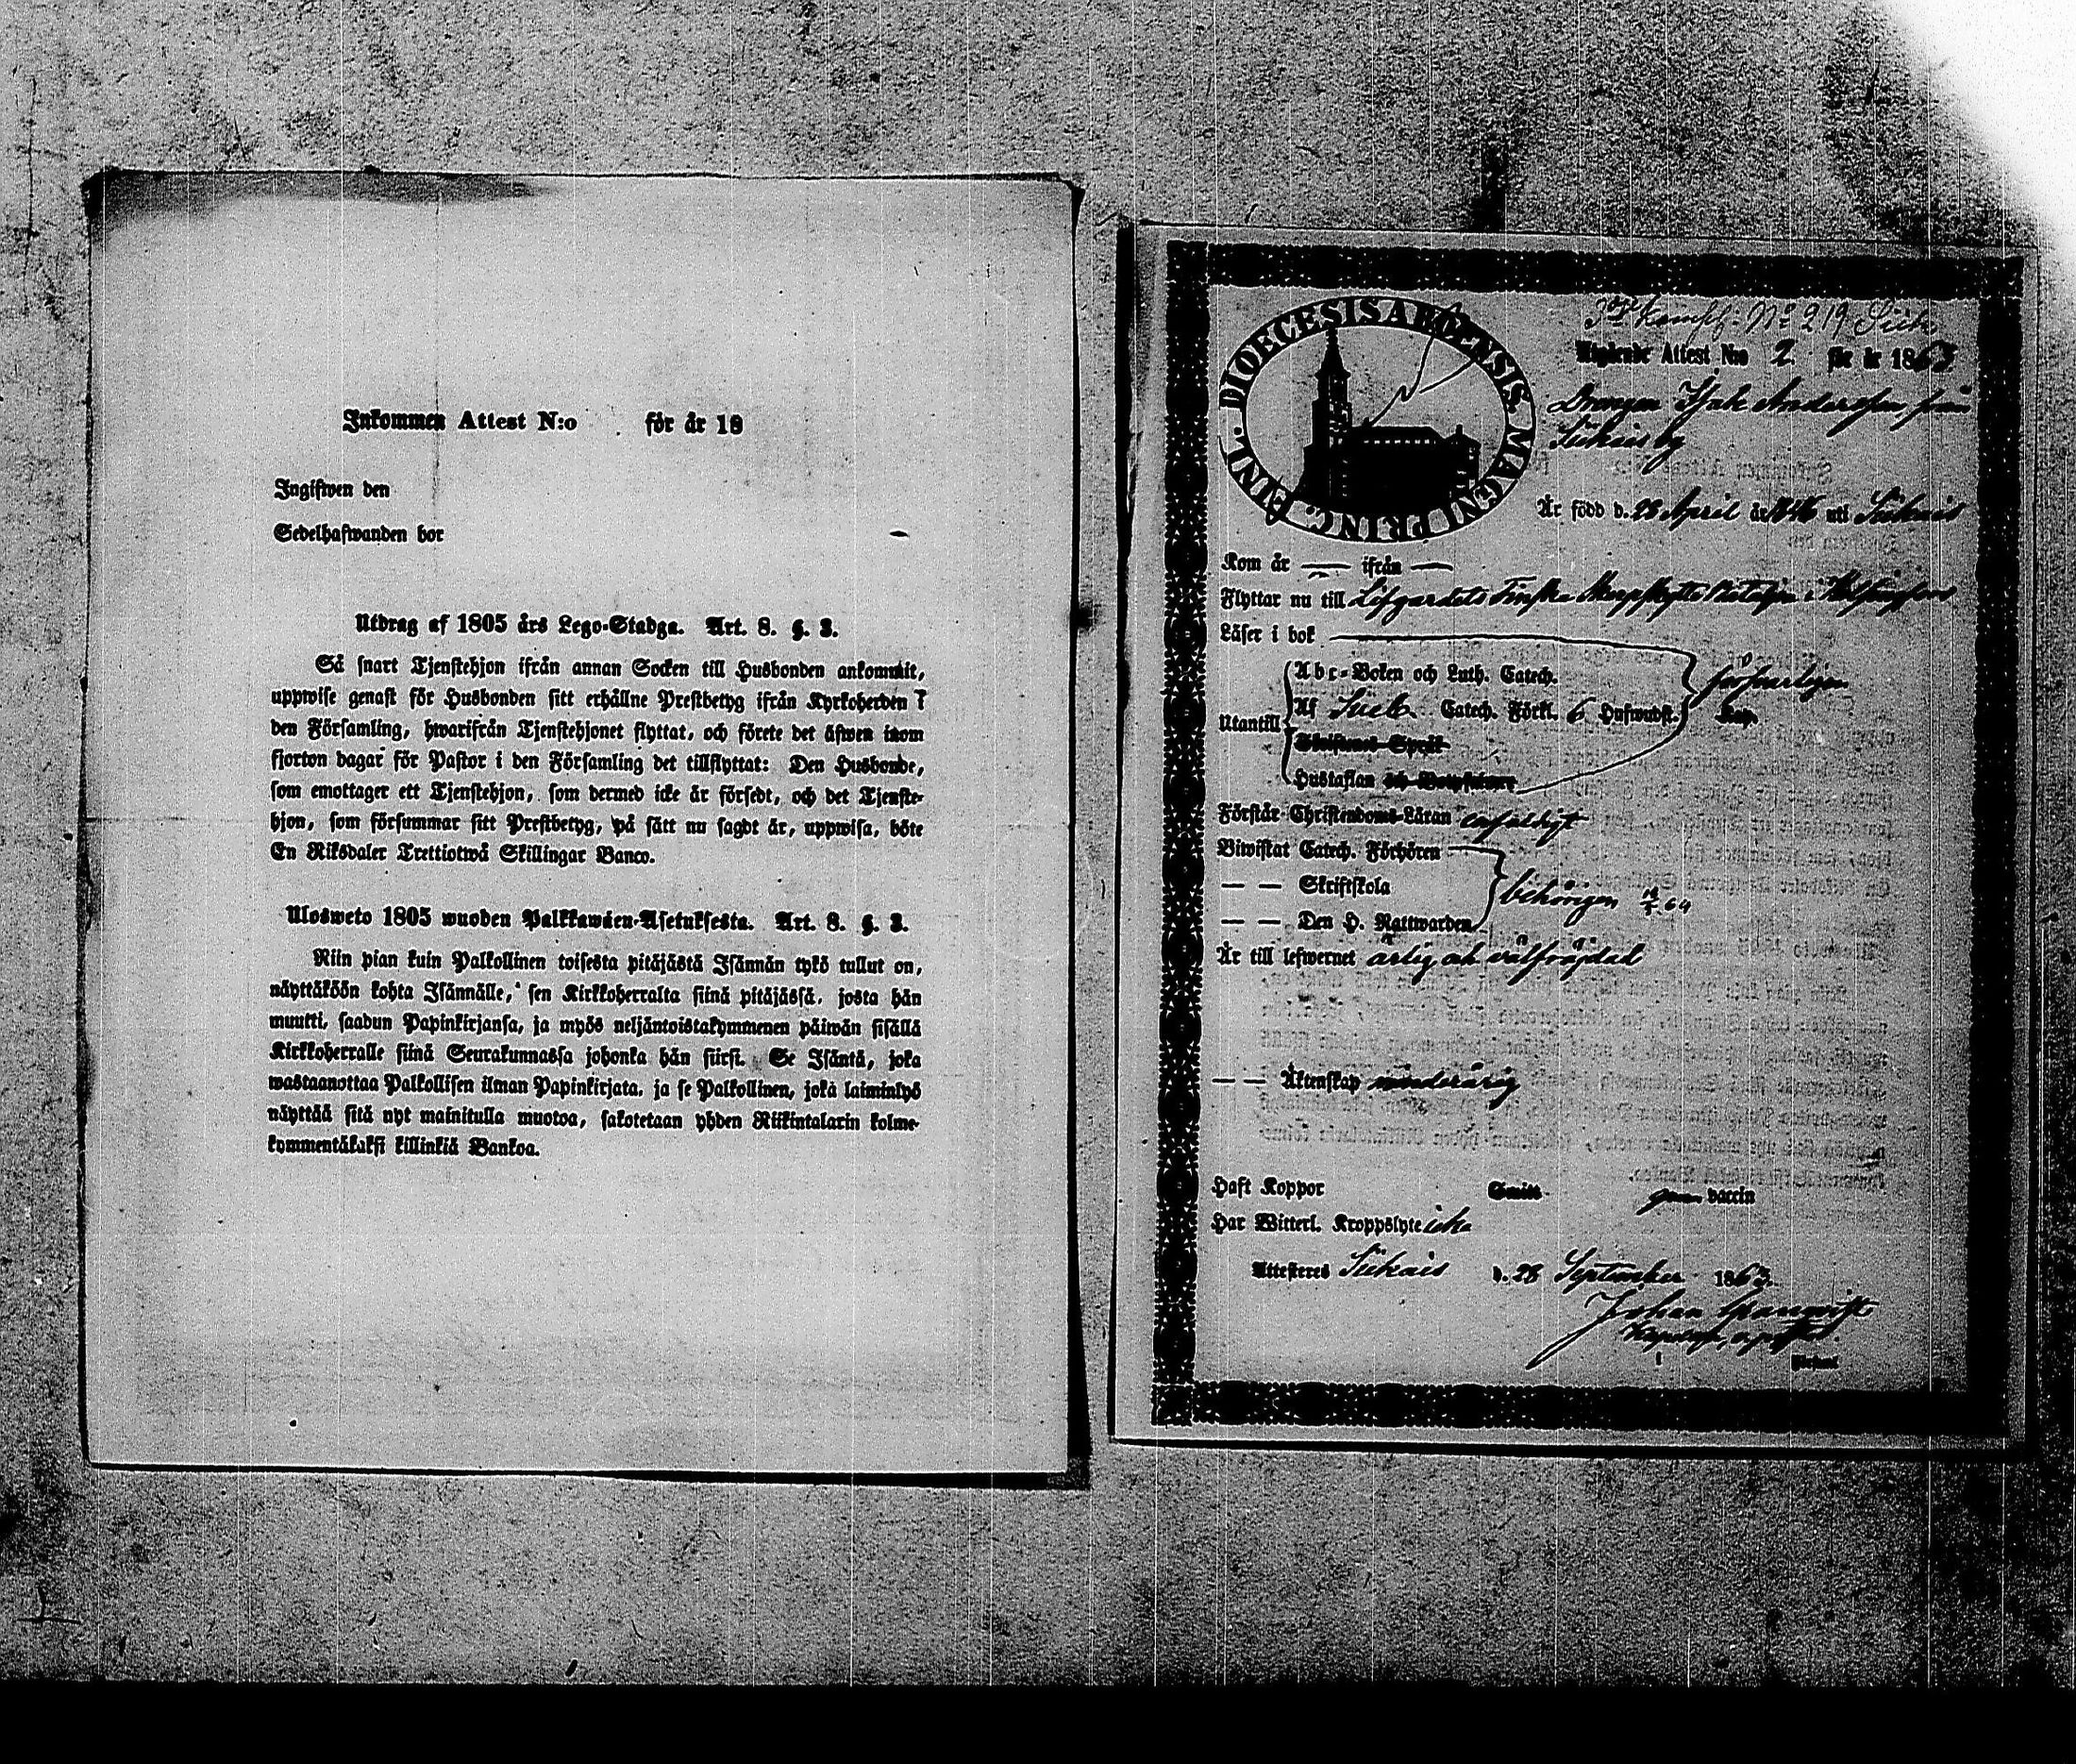 Inkommen Attest N:o för år 18
Ingifwen den
Sedelhafwanden bor
Utdrag af 1805 års Lego-Stadga. Art. 8. §. 3.
Så snart Tjenstehjon ifrån annan Socken till Husbonden ankommit,
uppwise genast för Husbonden sitt erhållne Prestbetyg ifrån Kyrkoherden i
den Församling, hwarifrån Tjenstehjonet flyttat, och förete det äfwen inom
fjorton dagar för Pastor i den Församling det tillflyttat: Den Husbonde,
som emottager ett Tjenstehjon, som dermed icke är försedt, och det Tjenste-
hjon, som försummar sitt Prestbetyg, på sätt nu sagdt är, uppwisa, böte
En Riksdaler Trettiotwå Skillingar Banco.
Ulosweto 1805 wuoden Palkkawäen-Asetuksesta. Art. 8. §. 3.
Niin pian kuin Palkollinen toisesta pitäjästä Isännän tykö tullut on,
näyttäköön kohta Isännälle, sen Kirkkoherralta siinä pitäjässä, josta hän
muutti, saadun Papinkirjansa, ja myös neljäntoistakymmenen päiwän sisällä
Kirkkoherralle siinä Seurakunnassa johonka hän siirsi. Se Isäntä, joka
wastaanottaa Palkollisen ilman Papinkirjata, ja se Palkollinen, joka laiminlyö
näyttää sitä nyt mainitulla muotoa, sakotetaan yhden Riikintalarin kolme-
kymmentäkaksi killinkiä Bankoa.
DIOECESIS ABOENSIS. MAGNI PRINC. FINL.
N:o 219
Utgående Attest N:o 2 för år 1863
Drengen Isak Andersson från
Siikais by
Är född d. 28 April år 1846 uti Siikais
Kom år — ifrån —
Flyttar nu till Lifgardets Finska Skarpskytte Bataljon i Helsingfors
Läser i bok
försvarligen
Utantill
Abc-Boken och Luth. Catech.
Af Sveb. Catech. Förkl. 6 Hufwudst.
Kap.
Skriftenes Språk
Hustaflan och
Förstår Christendoms-Läran enfaldigt
Biwistat Catech. Förhören
— — Skriftskola
behörigen
— — Den H. Nattwarden
Är till lefwernet ärlig och välfrejdad
— — Äktenskap minderårig
Haft Koppor Smitt. vaccin
Har Witterl. Kroppslyte icke
Attesteras Siikais d. 28 September 1863.
Johan